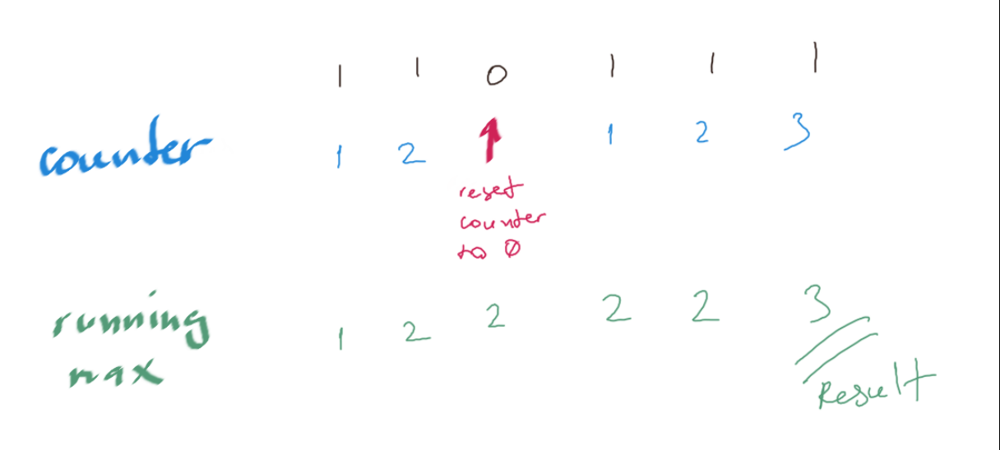 1 1 0 1 1 1
counter 1 2 1 2 3
reset
counter
to 0
running
max 1 2 2 2 2 3
Result